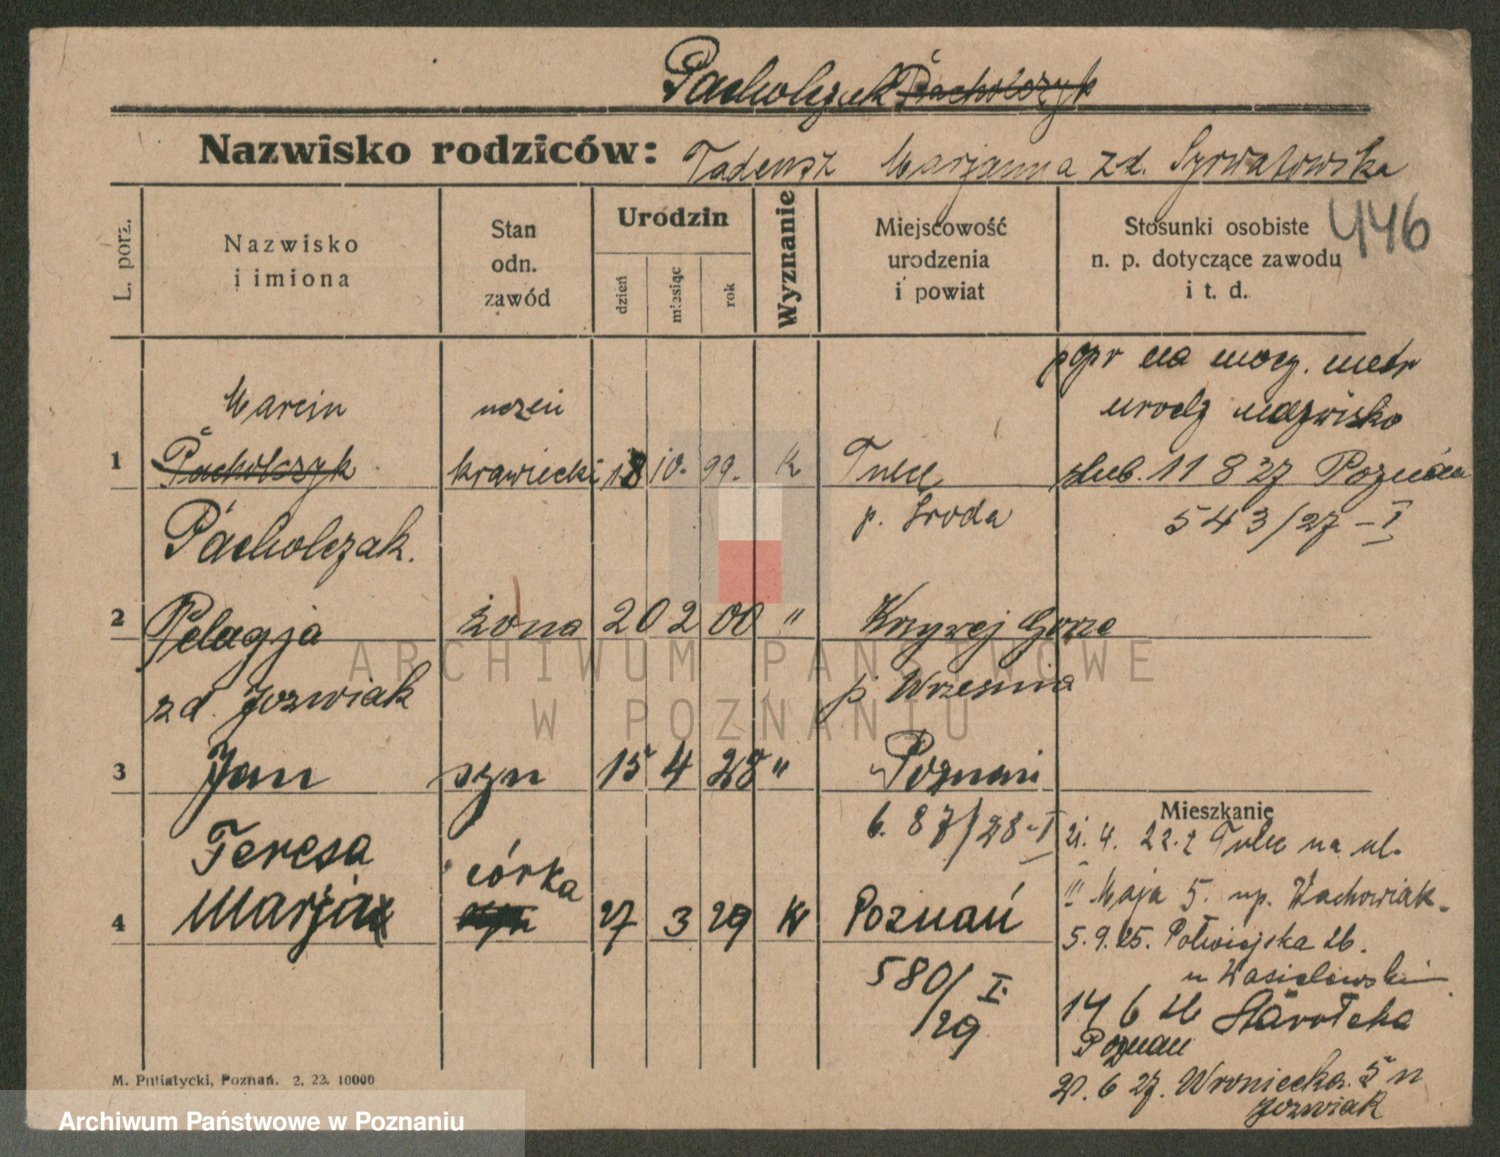 Pacholczak Pacholczyk
Nazwisko rodziców: Tadeusz Marjanna zd. Syrwatowska
446
L. porz.
Nazwisko
i imiona
Stan
odn.
zawód
Urodzin
dzień
miesiąc
rok
Wyznanie
Miejscowość
urodzenia
i powiat
Stosunki osobiste
n. p. dotyczące zawodu
i t. d.
popr na mocy. metr
urodz nazwisko
Marcin uczeń
1 Pacholczyk krawiecki 18 10. 99. k Tulce ślub. 11 8 27 Poznań
Pacholczak. p. Środa 543/27 - I
2 Pelagja żona 20 2 00 " Krzywej Górze
zd. Jozwiak p. Wrzesnia
3 Jan syn 15 4 28 " Poznań
6. 87/28 - I
Teresa córka
4 Marja 27 3 29 k Poznań
580/29 I.
Mieszkanie
21. 4. 22. z Tulec na ul.
III Maja 5. up.
5. 9. 25. Półwiejska 26.
u Wasielewski
14 6 26 Starołeka
Poznań
20. 6 27. Wroniecka. 5 u
Jozwiak
M. Putiatycki, Poznań. 2. 22. 10000
ARCHIWUM PAŃSTWOWE
W POZNANIU
Archiwum Państwowe w Poznaniu